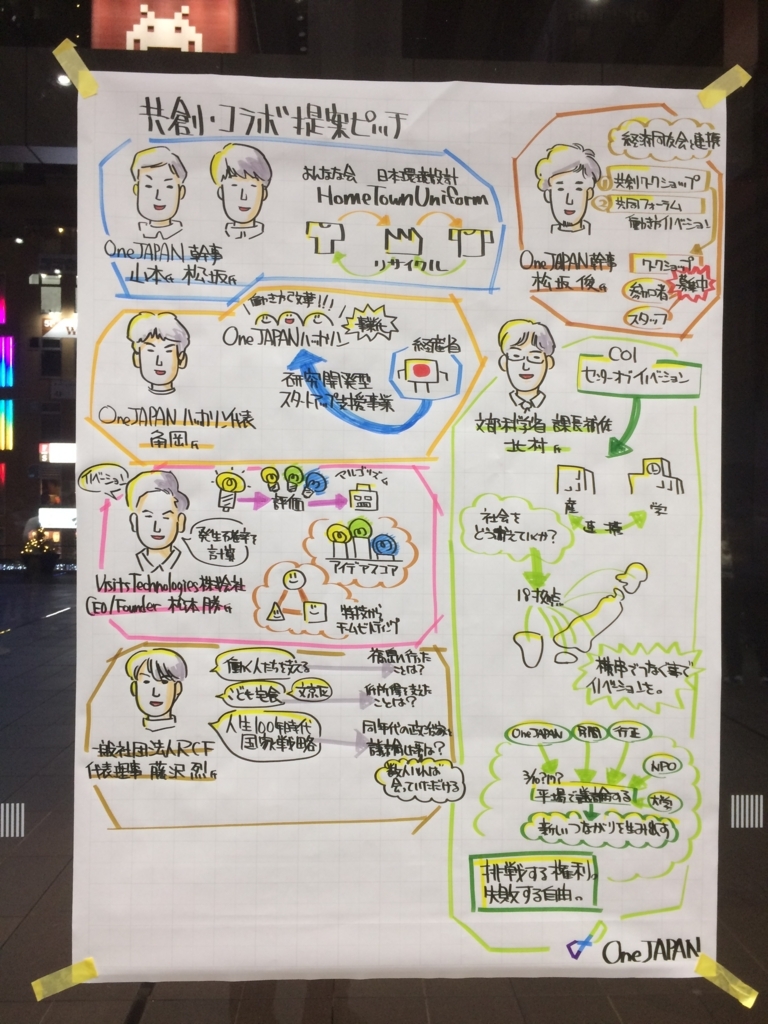 共創・コラボ提案ピッチ
おんなたち会 日本環境設計
HomeTownUniform
リサイクル
OneJAPAN 幹事
山本氏 松坂氏
経済同友会と連携
① 共創ワークショップ
② 共同フォーラム
働き方イノベーション
OneJAPAN 幹事
松坂 俊氏
ワークショップ
参加者
スタッフ
募集中
働き方改革!!!
OneJAPANハッカソン
事業化
経産省
研究開発型
スタートアップ支援事業
OneJAPANハッカソン代表
角岡氏
COI
センターオブイノベーション
文部科学省 課長補佐
北村氏
産
学
連携
社会を
どう変えていくか?
18拠点
横串でつなぐ事で
イノベーションを。
OneJAPAN
民間
行政
NPO
大学
平場で議論する
新しいつながりを生み出す
挑戦する権利。
失敗する自由。
イノベーション!
評価
発生確率を
計算
アイデアスコア
特技から
チームビルディング
VisitsTechnologies株式会社
CEO/Founder 松本勝氏
働く人たちを支える
福島に行った
ことは?
こども宅食
文京区
人生100年時代
国家戦略
同年代の政治家と
数人いれば
会っていただける
一般社団法人RCF
代表理事 藤沢 烈氏
OneJAPAN